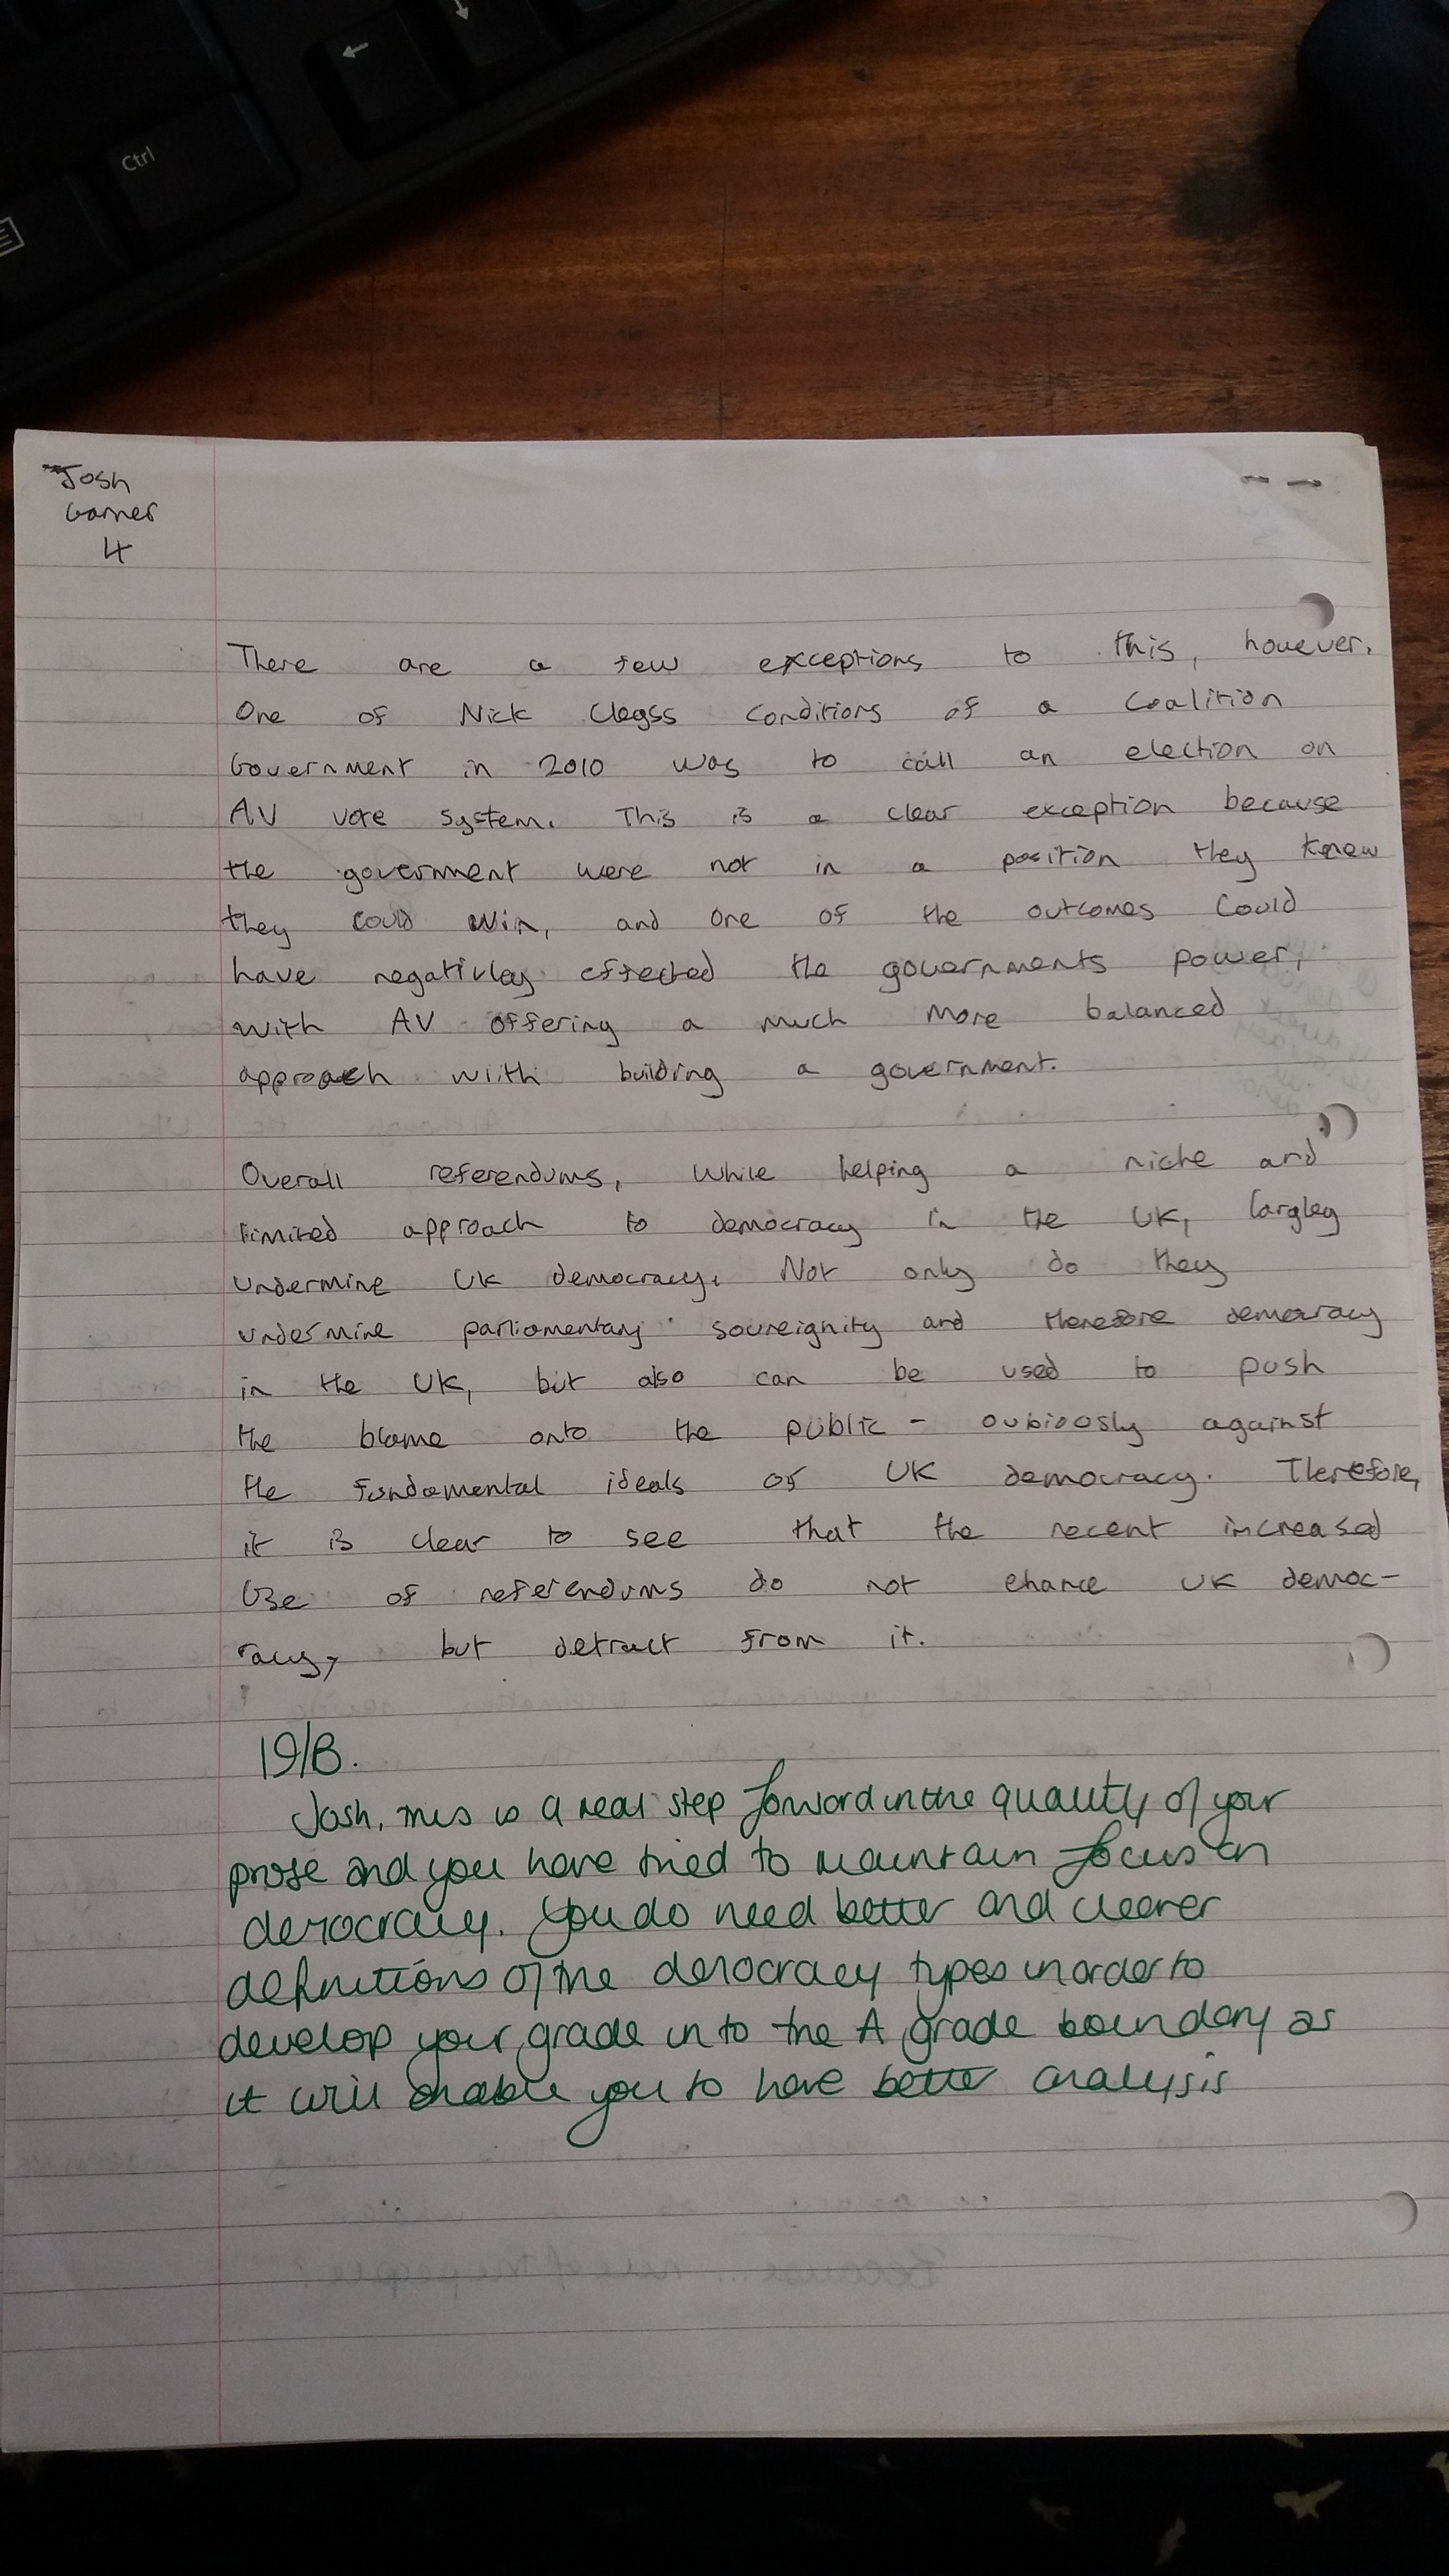 Ctrl
Josh
Garner
4
There are a few exceptions to this, however.
One of Nick Clegss conditions of a Coalition
Government in 2010 was to call an election on
AV vote system. This is a clear exception because
the government were not in a position they knew
they could win, and one of the outcomes could
have negativley effected the governments power,
with AV offering a much more balanced
approach with building a government.
Overall referendums, while helping a niche and
limited approach to democracy in the UK, largley
undermine UK democracy. Not only do they
undermine parliamentary sovreignity and therefore democracy
in the UK, but also can be used to push
the blame onto the public - oubiously against
the fundamental ideals of UK democracy. Therefore,
it is clear to see that the recent increased
Use of referendums do not ehance UK democ-
racy, but detract from it.
19/B.
Josh, this is a real step forward in the quality of your
prose and you have tried to maintain focus on
democracy. You do need better and clearer
definitions of the democracy types in order to
develop your grade in to the A grade boundary as
it will enable you to have better analysis